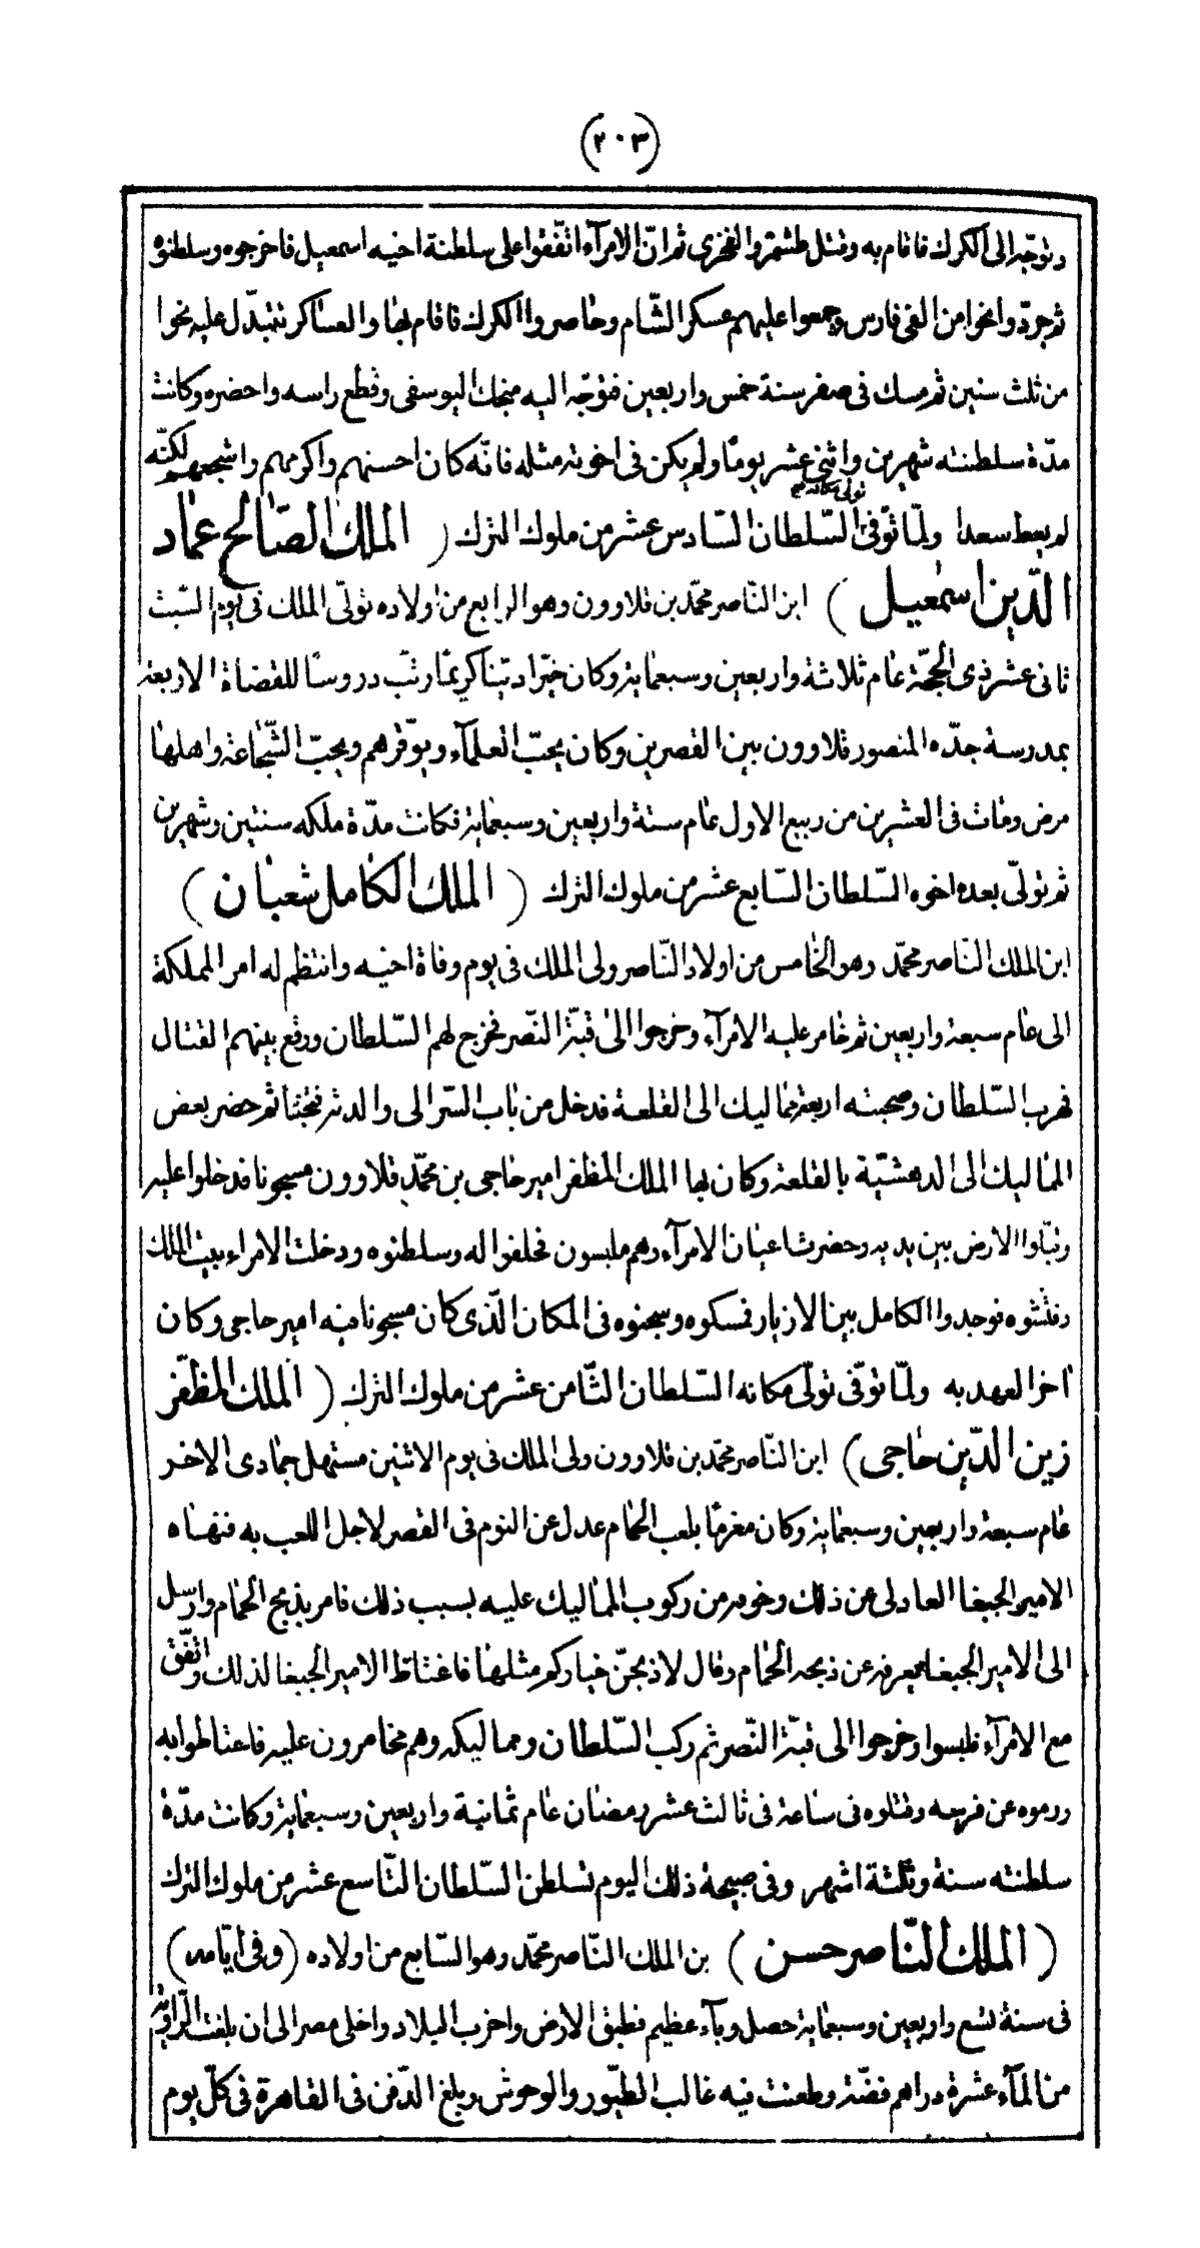 (٢٠٣)
وتوجّه الى الكرك فاقام به وقتل طشتمر والفخرى ثم انّ الامرآء اتّفقوا على سلطنة اخيه اسمعيل فاخرجوه وسلطنوه
ثم جرّدوا نحوا من الفى فارس وجمعوا عليهم عسكر الشّام وحاصروا الكرك فاقام بها والعساكر تتبدّل عليه نحوا
من ثلث سنين ثم مسك فى صفر سنة خمس واربعين فتوجّه اليه منجك اليوسفى وقطع راسه واحضره وكانت
مدّة سلطنته شهرين واثنى عشر يومًا ولم يكن فى اخوته مثله فانّه كان احسنهم واكرمهم واشجعهم لكنّه
لم يعط سعدا ولمّا توّفى تولى مكانه السّلطان السّادس عشر من ملوك الترك (الملك الصّالح عماد
الدّين اسمعيل) ابن النّاصر محمّد بن قلاوون وهو الرابع من اولاده تولّى الملك فى يوم السّبت
ثانى عشر ذى الحجّة عام ثلاثة واربعين وسبعماية وكان خيّرا ديّنا كريمًا رتّب دروسًا للقضاة الاربعة
بمدرسة جدّه المنصور قلاوون بين القصرين وكان يحبّ العلمآء ويوّقرهم ويحبّ الشّجاعة واهلها
مرض ومات فى العشرين من ربيع الاول عام ستة واربعين وسبعماية فكانت مدّة ملكه سنتين وشهرين
ثم تولّى بعده اخوه السّلطان السّابع عشر من ملوك الترك (الملك الكامل شعبان)
ابن الملك النّاصر محمّد وهو الخامس من اولاد النّاصر ولى الملك فى يوم وفاة اخيه وانتظم له امر المملكة
الى عام سبعة واربعين ثم خامر عليه الامرآء وخرجوا الى قبّة النّصر فخرج لهم السّلطان ووقع بينهم القتال
فهرب السّلطان وصحبته اربعة مماليك الى القلعة فدخل من باب السّر الى والدته فتخبّا ثم حضر بعض
المماليك الى الدهشّية بالقلعة وكان بها الملك المظفر امير حاجى بن محمّد قلاوون مسجونا فدخلوا عليه
وقبّلوا الارض بين يديه وحضرت اعيان الامرآء وهم ملبسون فحلفوا له وسلطنوه ودخلت الامراء بيت الملك
وفتّشوه فوجدوا الكامل بين الازيار فمسكوه وسجنوه فى المكان الّذى كان مسجونا فيه امير حاجى وكان
اخر العهد به ولمّا توّفى تولّى مكانه السّلطان الثّامن عشر من ملوك الترك (الملك المظفّر
زين الدّين حاجى) ابن النّاصر محمّد بن قلاوون ولى الملك فى يوم الاثنين مستهل جمادى الاخر
عام سبعة واربعين وسبعماية وكان مغرمًا بلعب الحمام عدل عن النوم فى القصر لاجل اللعب به فنهاه
الامير الجبغا العادلى عن ذلك وخوفه من ركوب المماليك عليه بسبب ذلك فامر بذبح الحمام وارسل
الى الامير الجبغا يعرفه عن ذبحه الحمام وقال لاذبحنّ خياركم مثلها فاغتاظ الامير الجبغا لذلك واتّفق
مع الامرآء فلبسوا وخرجوا الى قبّة النّصر ثم ركب السّلطان ومماليكه وهم مخامرون عليه فاحتاطوا به
ورموه عن فرسه وقتلوه فى ساعة فى ثالث عشر رمضان عام ثمانية واربعين وسبعماية وكانت مدّة
سلطنته سنة وثلثة اشهر وفى صبيحة ذلك اليوم تسلطن السّلطان التّاسع عشر من ملوك الترك
(الملك النّاصر حسن) بن الملك النّاصر محمّد وهو السّابع من اولاده (وفى ايّامه)
فى سنة تسع واربعين وسبعماية حصل وبآء عظيم فطبق الارض واخرب البلاد واخلى مصر الى ان بلغت الرّاوية
من المآء عشرة دراهم فضّة وطعنت فيه غالب الطّيور والوحوش وبلغ الدّفن فى القاهرة فى كلّ يوم